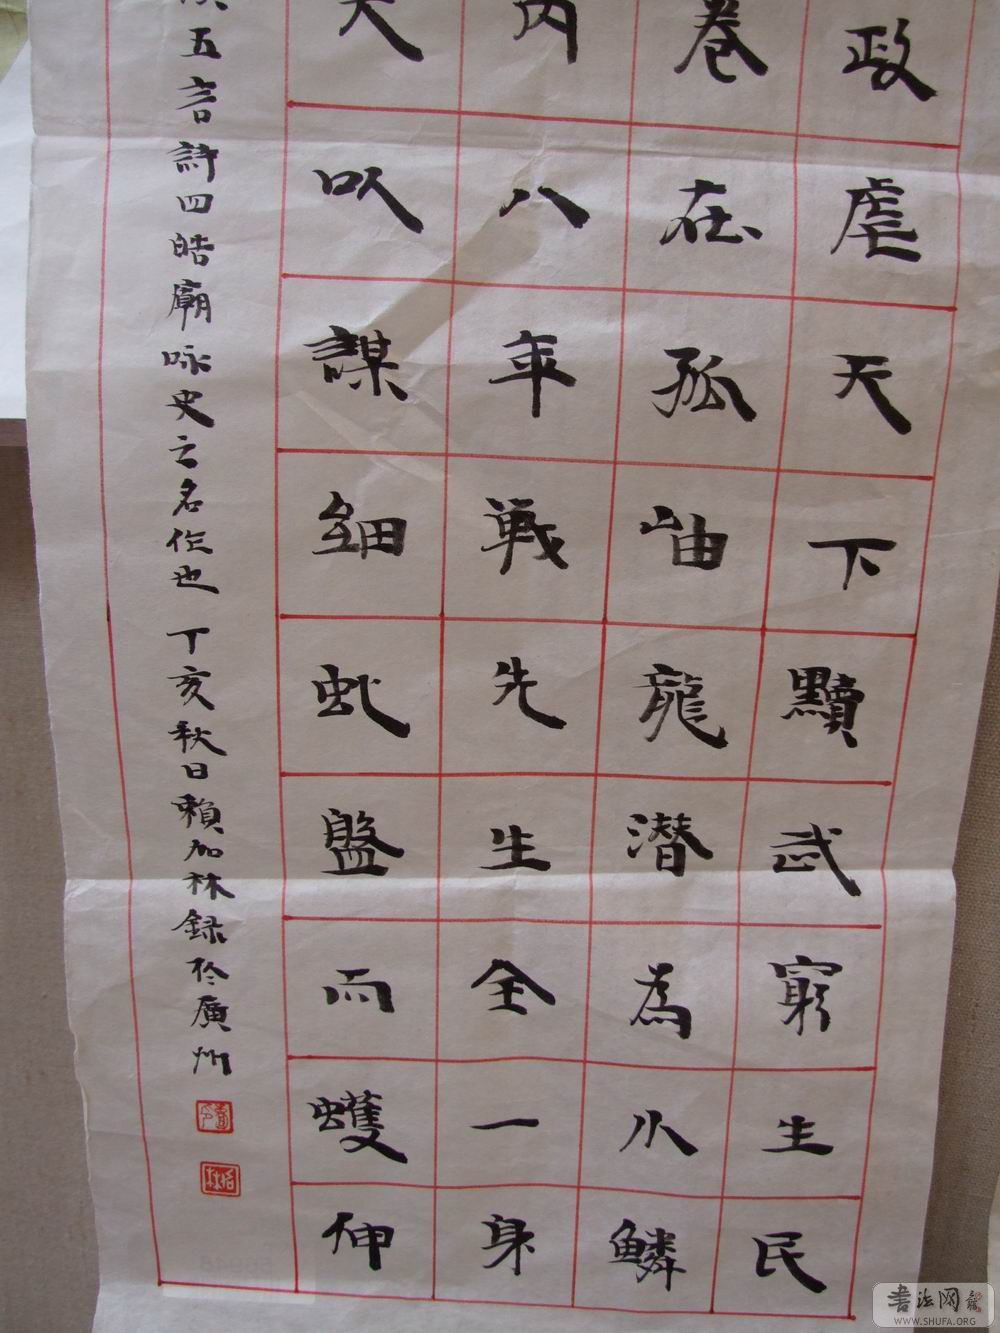 政虐天下黷武窮生民
卷在孤岫龍潛為小鱗
内八年戦先生全一身
大以謀細虬盤而蠖伸
五言詩四皓廟咏史之名作也 丁亥秋日賴加林録於廣州
书法网
WWW.SHUFA.ORG